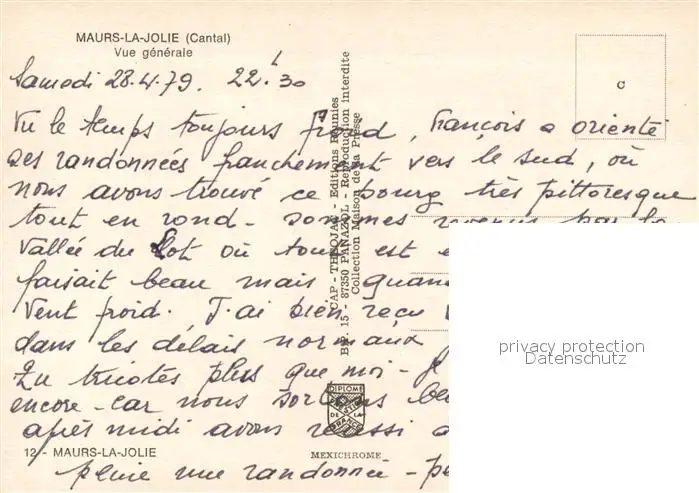 MAURS-LA-JOLIE (Cantal)
Vue générale
Samedi 28.4.79. 22h30
Vu le temps toujours froid, François a orienté
ses randonnées franchement vers le sud, où
nous avons trouvé ce bourg très pittoresque
tout en rond - sommes revenus par la
Vallée du Lot où tout est
faisait beau mais quan
vent froid. J'ai bien reçu
dans les délais normaux
Tu tricotes plus que moi - Je
encore - car nous sortons be
après midi avons réussi a
pleine une randonnée - pe
12 - MAURS-LA-JOLIE
MEXICHROME
CAP - THEOJAC - Editions Réunies
B.P. 15 - 87350 PANAZOL - Reproduction interdite
Collection Maison de la Presse
C
DIPLOME
PRESTIGE
DE LA
FRANCE
privacy protection
Datenschutz